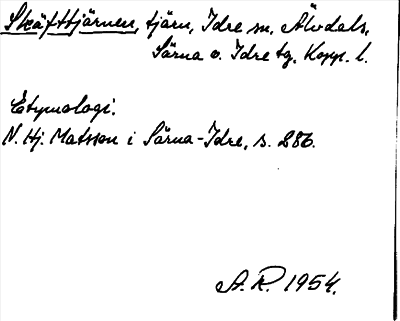 Skäfttjärnen, tjärn, Idre sn, Älvdals,
Särna o. Idre tg, Kopp. l.
Etymologi:
N. Hj. Matsson i Särna-Idre, s. 286.
A. R. 1954.